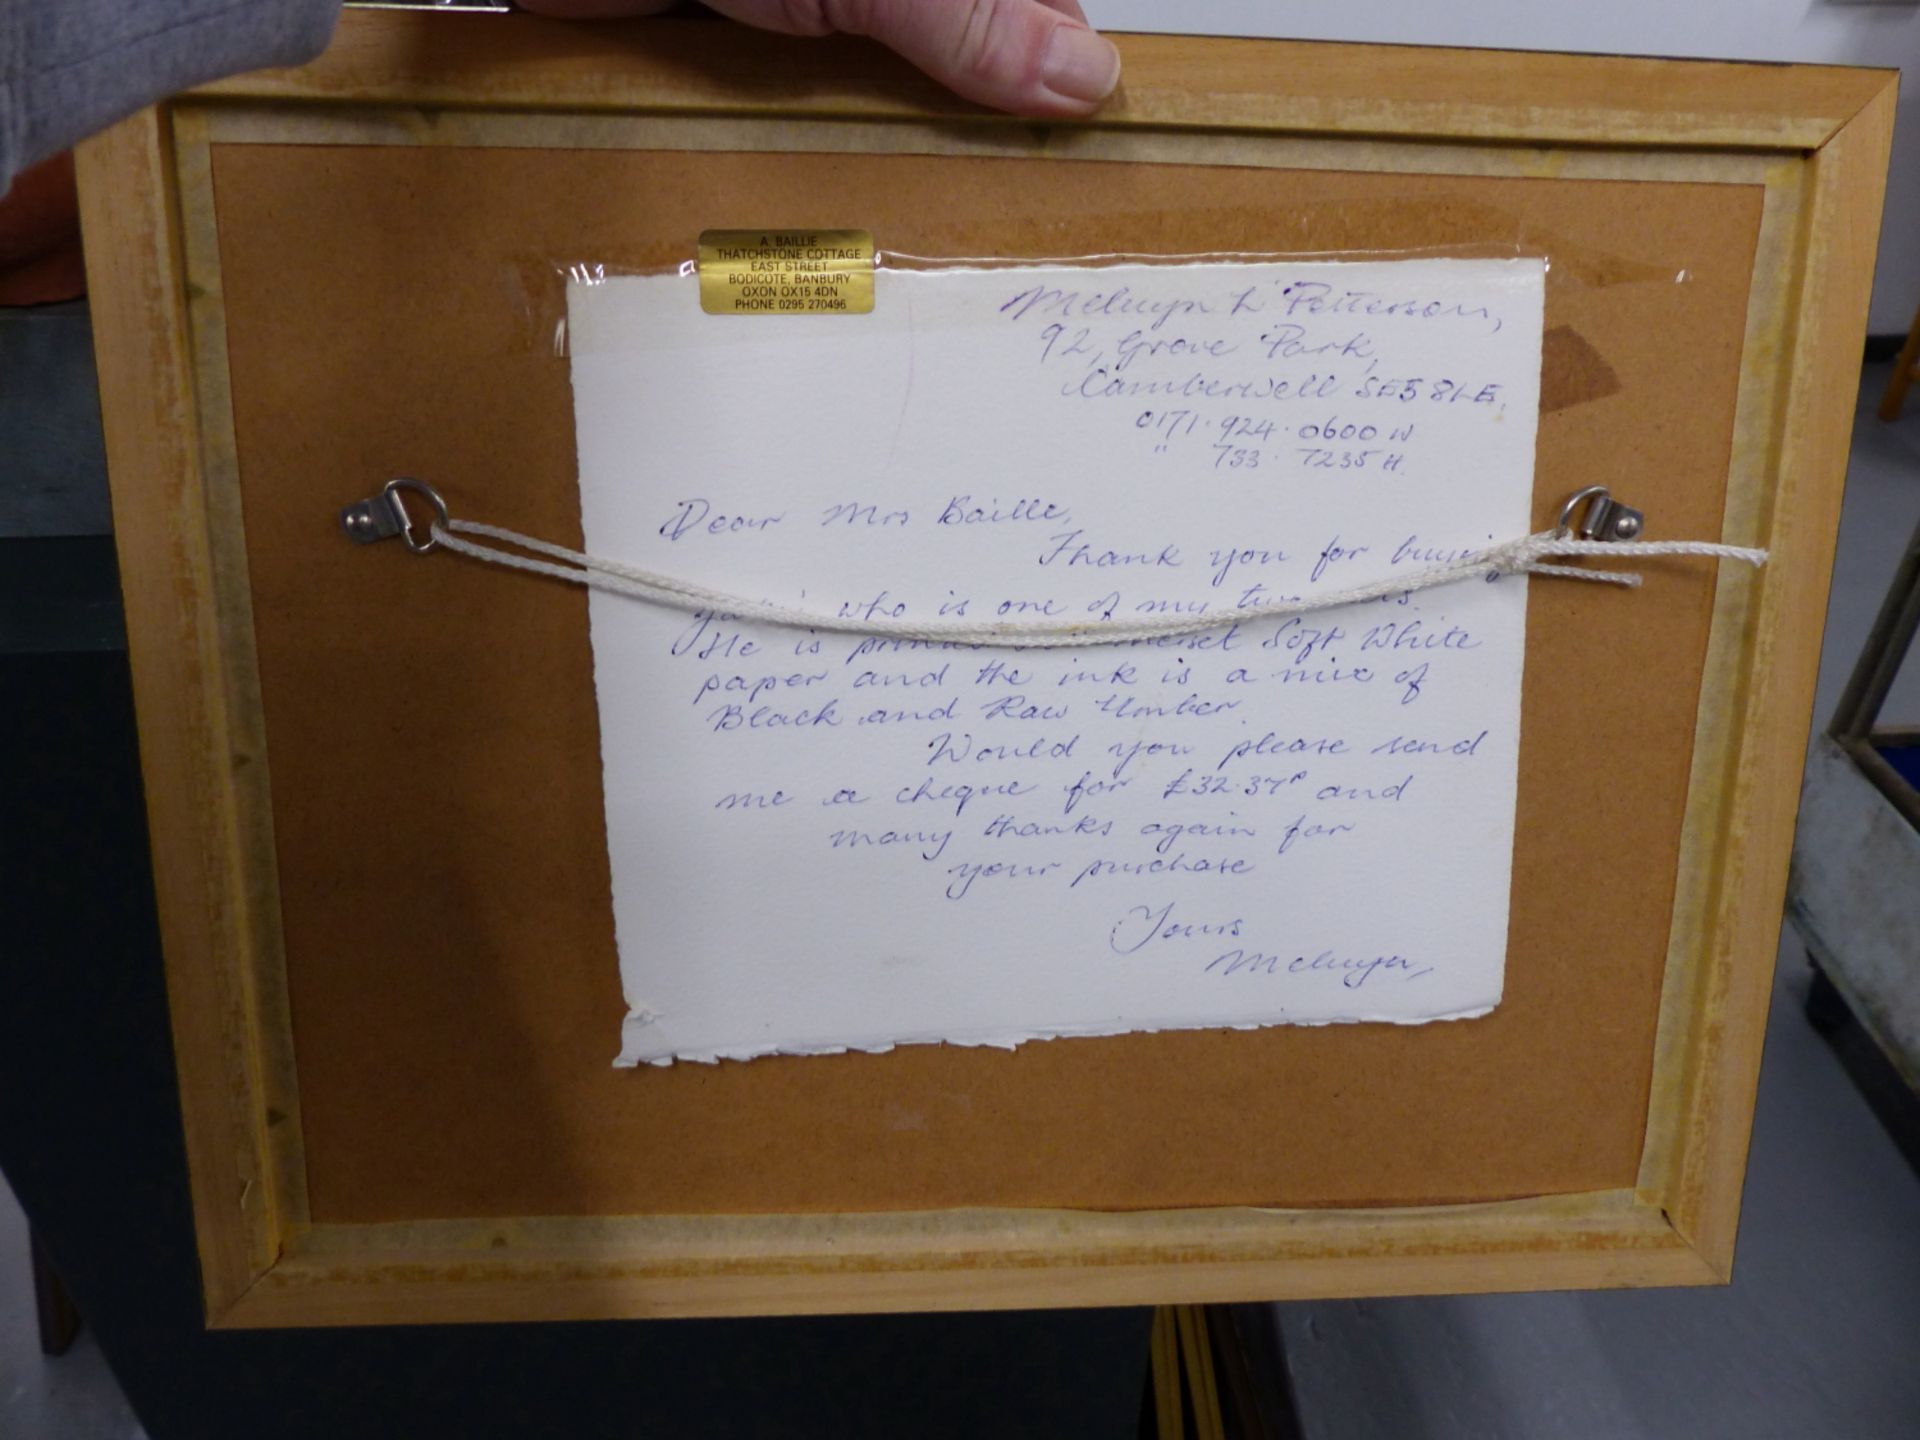 A. BAILLIE
THATCHSTONE COTTAGE
EAST STREET
BODICOTE, BANBURY
OXON OX15 4DN
PHONE 0295 270496
Melvyn L Petterson,
92, Grove Park,
Camberwell SE5 8LE.
0171·924·0600 W
" 733·7235 H.
Dear Mrs Baille,
Thank you for buying
who is one of my
He is Soft White
paper and the ink is a mix of
Black and Raw Umber.
Would you please send
me a cheque for £32·37p and
many thanks again for
your purchase
Yours
Melvyn,